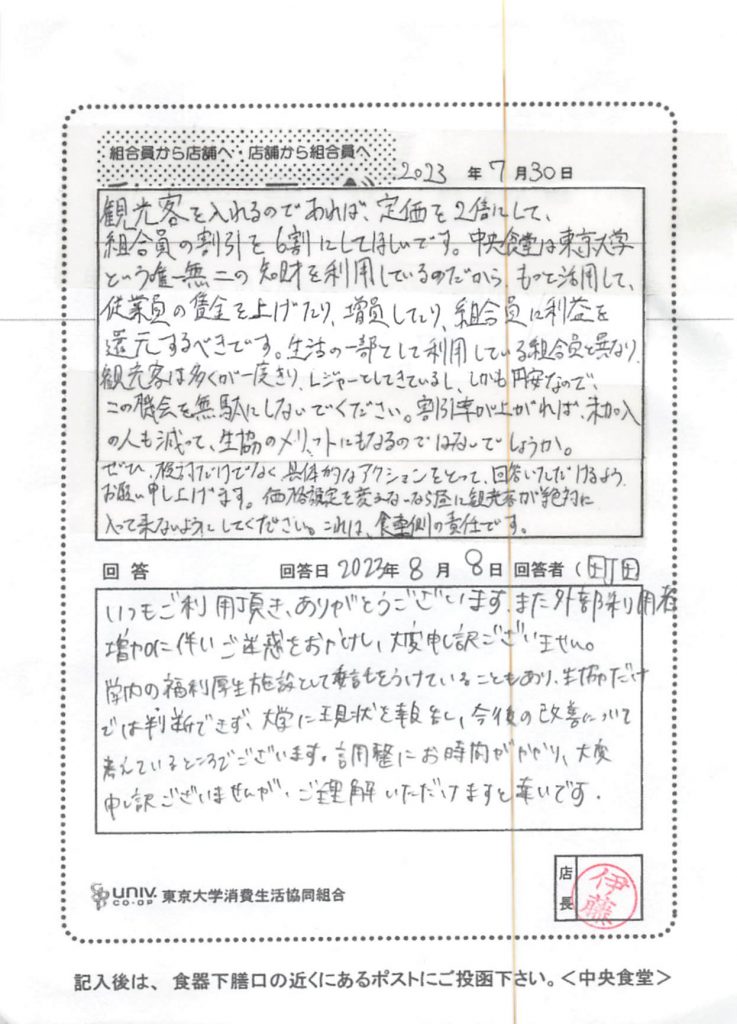 組合員から店舗へ・店舗から組合員へ
2023 年 7 月 30 日
観光客を入れるのであれば、定価を2倍にして、
組合員の割引を6割にしてほしいです。中央食堂は東京大学
という唯一無二の知財を利用しているのだから、もっと活用して、
従業員の賃金を上げたり、増員したり、組合員に利益を
還元するべきです。生活の一部として利用している組合員と異なり、
観光客は多くが一度きり、レジャーとしてきているし、しかも円安なので、
この機会を無駄にしないでください。割引率が上がれば、未加入
の人も減って、生協のメリットにもなるのではないでしょうか。
ぜひ、検討だけでなく具体的なアクションをとって、回答いただけるよう
お願い申し上げます。価格設定を変えないなら昼に観光客が絶対に
入って来ないようにしてください。これは、食堂側の責任です。
回答 回答日 2023年 8 月 8 日 回答者 (町田
いつもご利用頂き、ありがとうございます。また外部利用者
増加に伴いご迷惑をおかけし、大変申し訳ございません。
学内の福利厚生施設として委託をうけていることもあり、生協だけ
では判断できず、大学に現状を報告し、今後の改善について
考えているところでございます。調整にお時間がかかり、大変
申し訳ございませんが、ご理解いただけますと幸いです.
UNIV. CO-OP 東京大学消費生活協同組合
店長 伊藤
記入後は、食器下膳口の近くにあるポストにご投函下さい。<中央食堂>